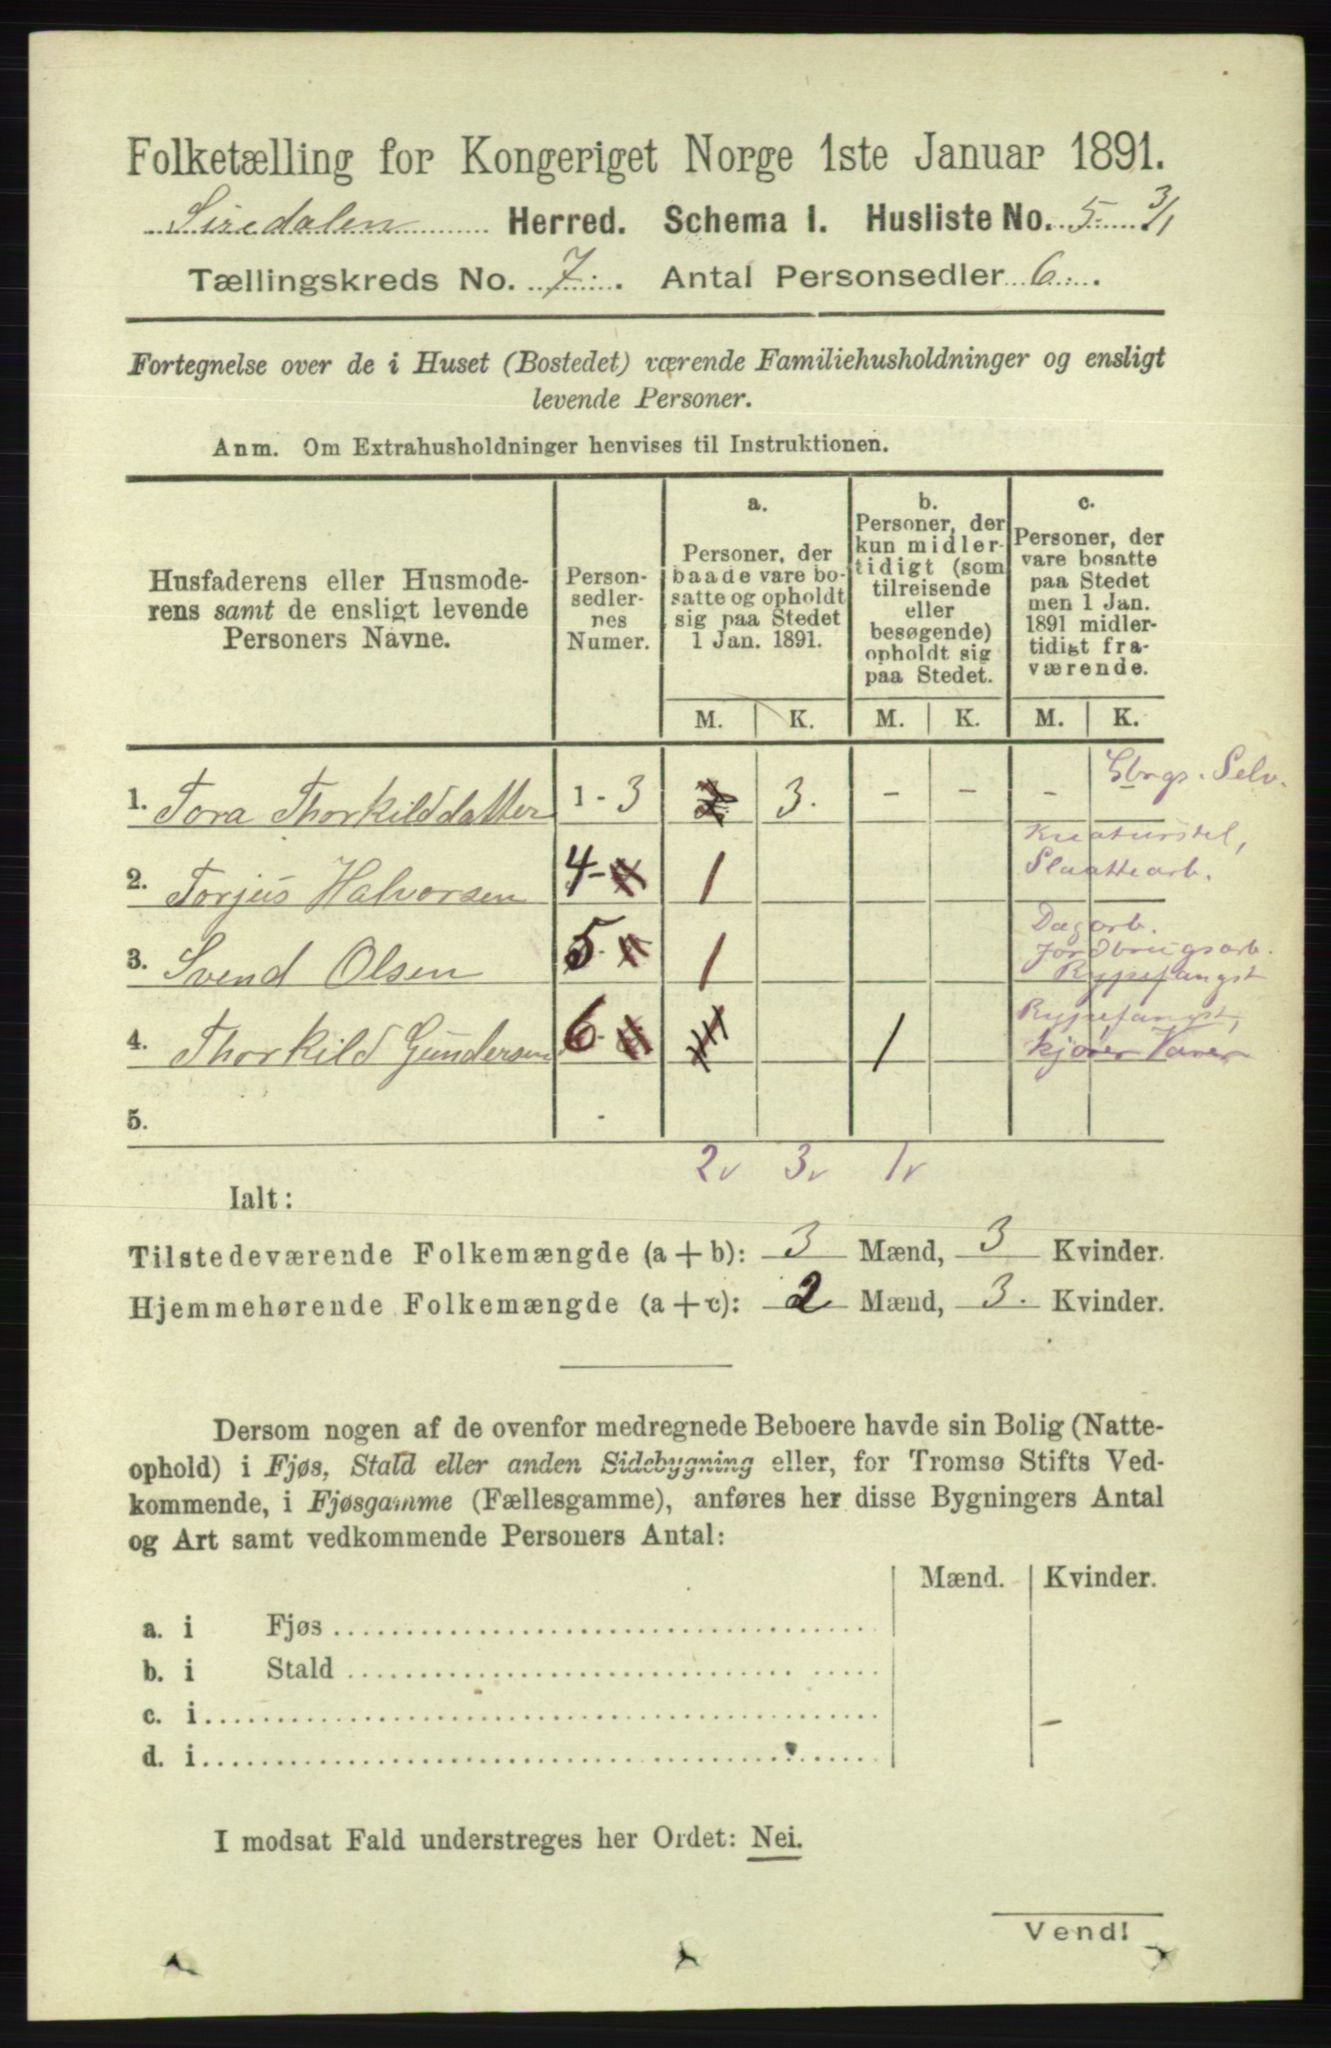 Folketælling for Kongeriget Norge 1ste Januar 1891.
Siredalen Herred. Schema 1. Husliste No. 5 3/1
Tællingskreds No. 7. Antal Personsedler 6.
Fortegnelse over de i Huset (Bostedet) værende Familiehusholdninger og ensligt
levende Personer.
Anm. Om Extrahusholdninger henvises til Instruktionen.
Husfaderens eller Husmode-
rens samt de ensligt levende
Personers Navne.
Person-
sedler-
nes
Numer.
a.
Personer, der
baade vare bo-
satte og opholdt
sig paa Stedet
1 Jan. 1891.
b.
Personer, der
kun midler-
tidigt (som
tilreisende
eller
besøgende)
opholdt sig
paa Stedet.
c.
Personer, der
vare bosatte
paa Stedet
men 1 Jan.
1891 midler-
tidigt fra-
værende.
M. K. M. K. M. K.
1. Tora Thorkilddatter 1 - 3 3. - - - Gbrgs. Selv.
2. Torjus Halvorsen 4- 1 Kreaturstel,
Slaattearb.
3. Svend Olsen 5- 1 Dagarb.
Jordbrugsarb.
Rypefangst
4. Thorkild Gundersen 6- 1 Rypefangst,
kjører Varer
5. -
2v 3v 1v
Ialt:
Tilstedeværende Folkemængde (a + b): 3 Mænd, 3 Kvinder.
Hjemmehørende Folkemængde (a + c): 2 Mænd, 3. Kvinder.
Dersom nogen af de ovenfor medregnede Beboere havde sin Bolig (Natte-
ophold) i Fjøs, Stald eller anden Sidebygning eller, for Tromsø Stifts Ved-
kommende, i Fjøsgamme (Fællesgamme), anføres her disse Bygningers Antal
og Art samt vedkommende Personers Antal:
Mænd. Kvinder.
a. i Fjøs
b. i Stald
c. i
d. i
I modsat Fald understreges her Ordet: Nei.
Vend!